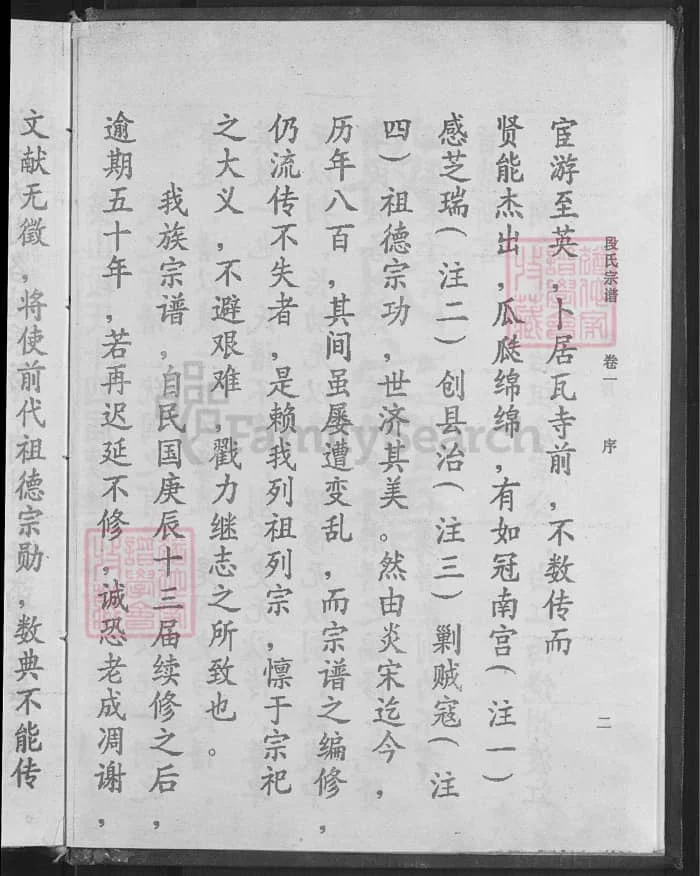 段氏宗谱 卷一 序 二
宦游至英，卜居瓦寺前，不数传而
贤能杰出，瓜瓞绵绵，有如冠南宫（注一）
感芝瑞（注二）创县治（注三）剿贼寇（注
四）祖德宗功，世济其美。然由炎宋迄今，
历年八百，其间虽屡遭变乱，而宗谱之编修，
仍流传不失者，是赖我列祖列宗，懔于宗祀
之大义，不避艰难，戮力继志之所致也。
我族宗谱，自民国庚辰十三届续修之后，
逾期五十年，若再迟延不修，诚恐老成凋谢，
文献无徵，将使前代祖德宗勋，数典不能传
FamilySearch